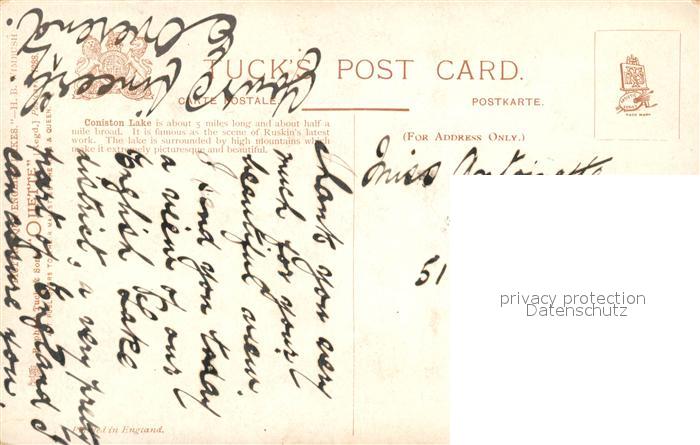 TUCK'S POST CARD.
CARTE POSTALE.
POSTKARTE.
Coniston Lake is about 5 miles long and about half a
mile broad. It is famous as the scene of Ruskin's latest
work. The lake is surrounded by high mountains which
make it extremely picturesque and beautiful.
(FOR ADDRESS ONLY.)
TRADE MARK
Miss
51
Thank you very
much for your
beautiful view.
I send you today
a view of our
English Lake
district, a very pretty
part of England I
can assure you.
Yours sincerely
"OILETTE"
Printed in England.
privacy protection
Datenschutz